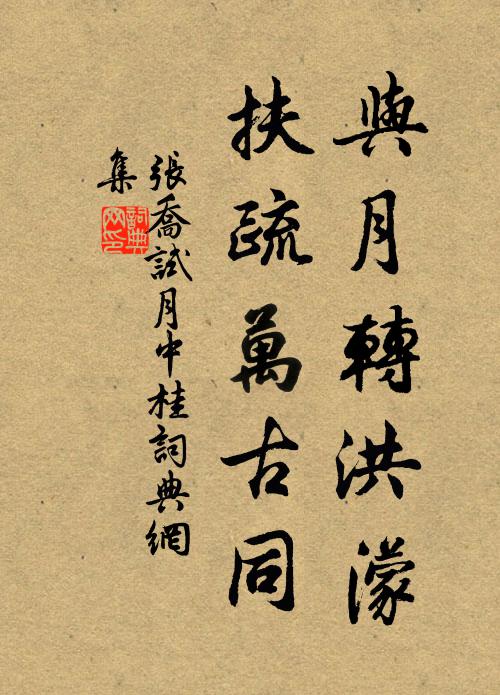 與月轉洪濛
扶疏萬古同
張喬試月中桂詞典網
集
詞典網印